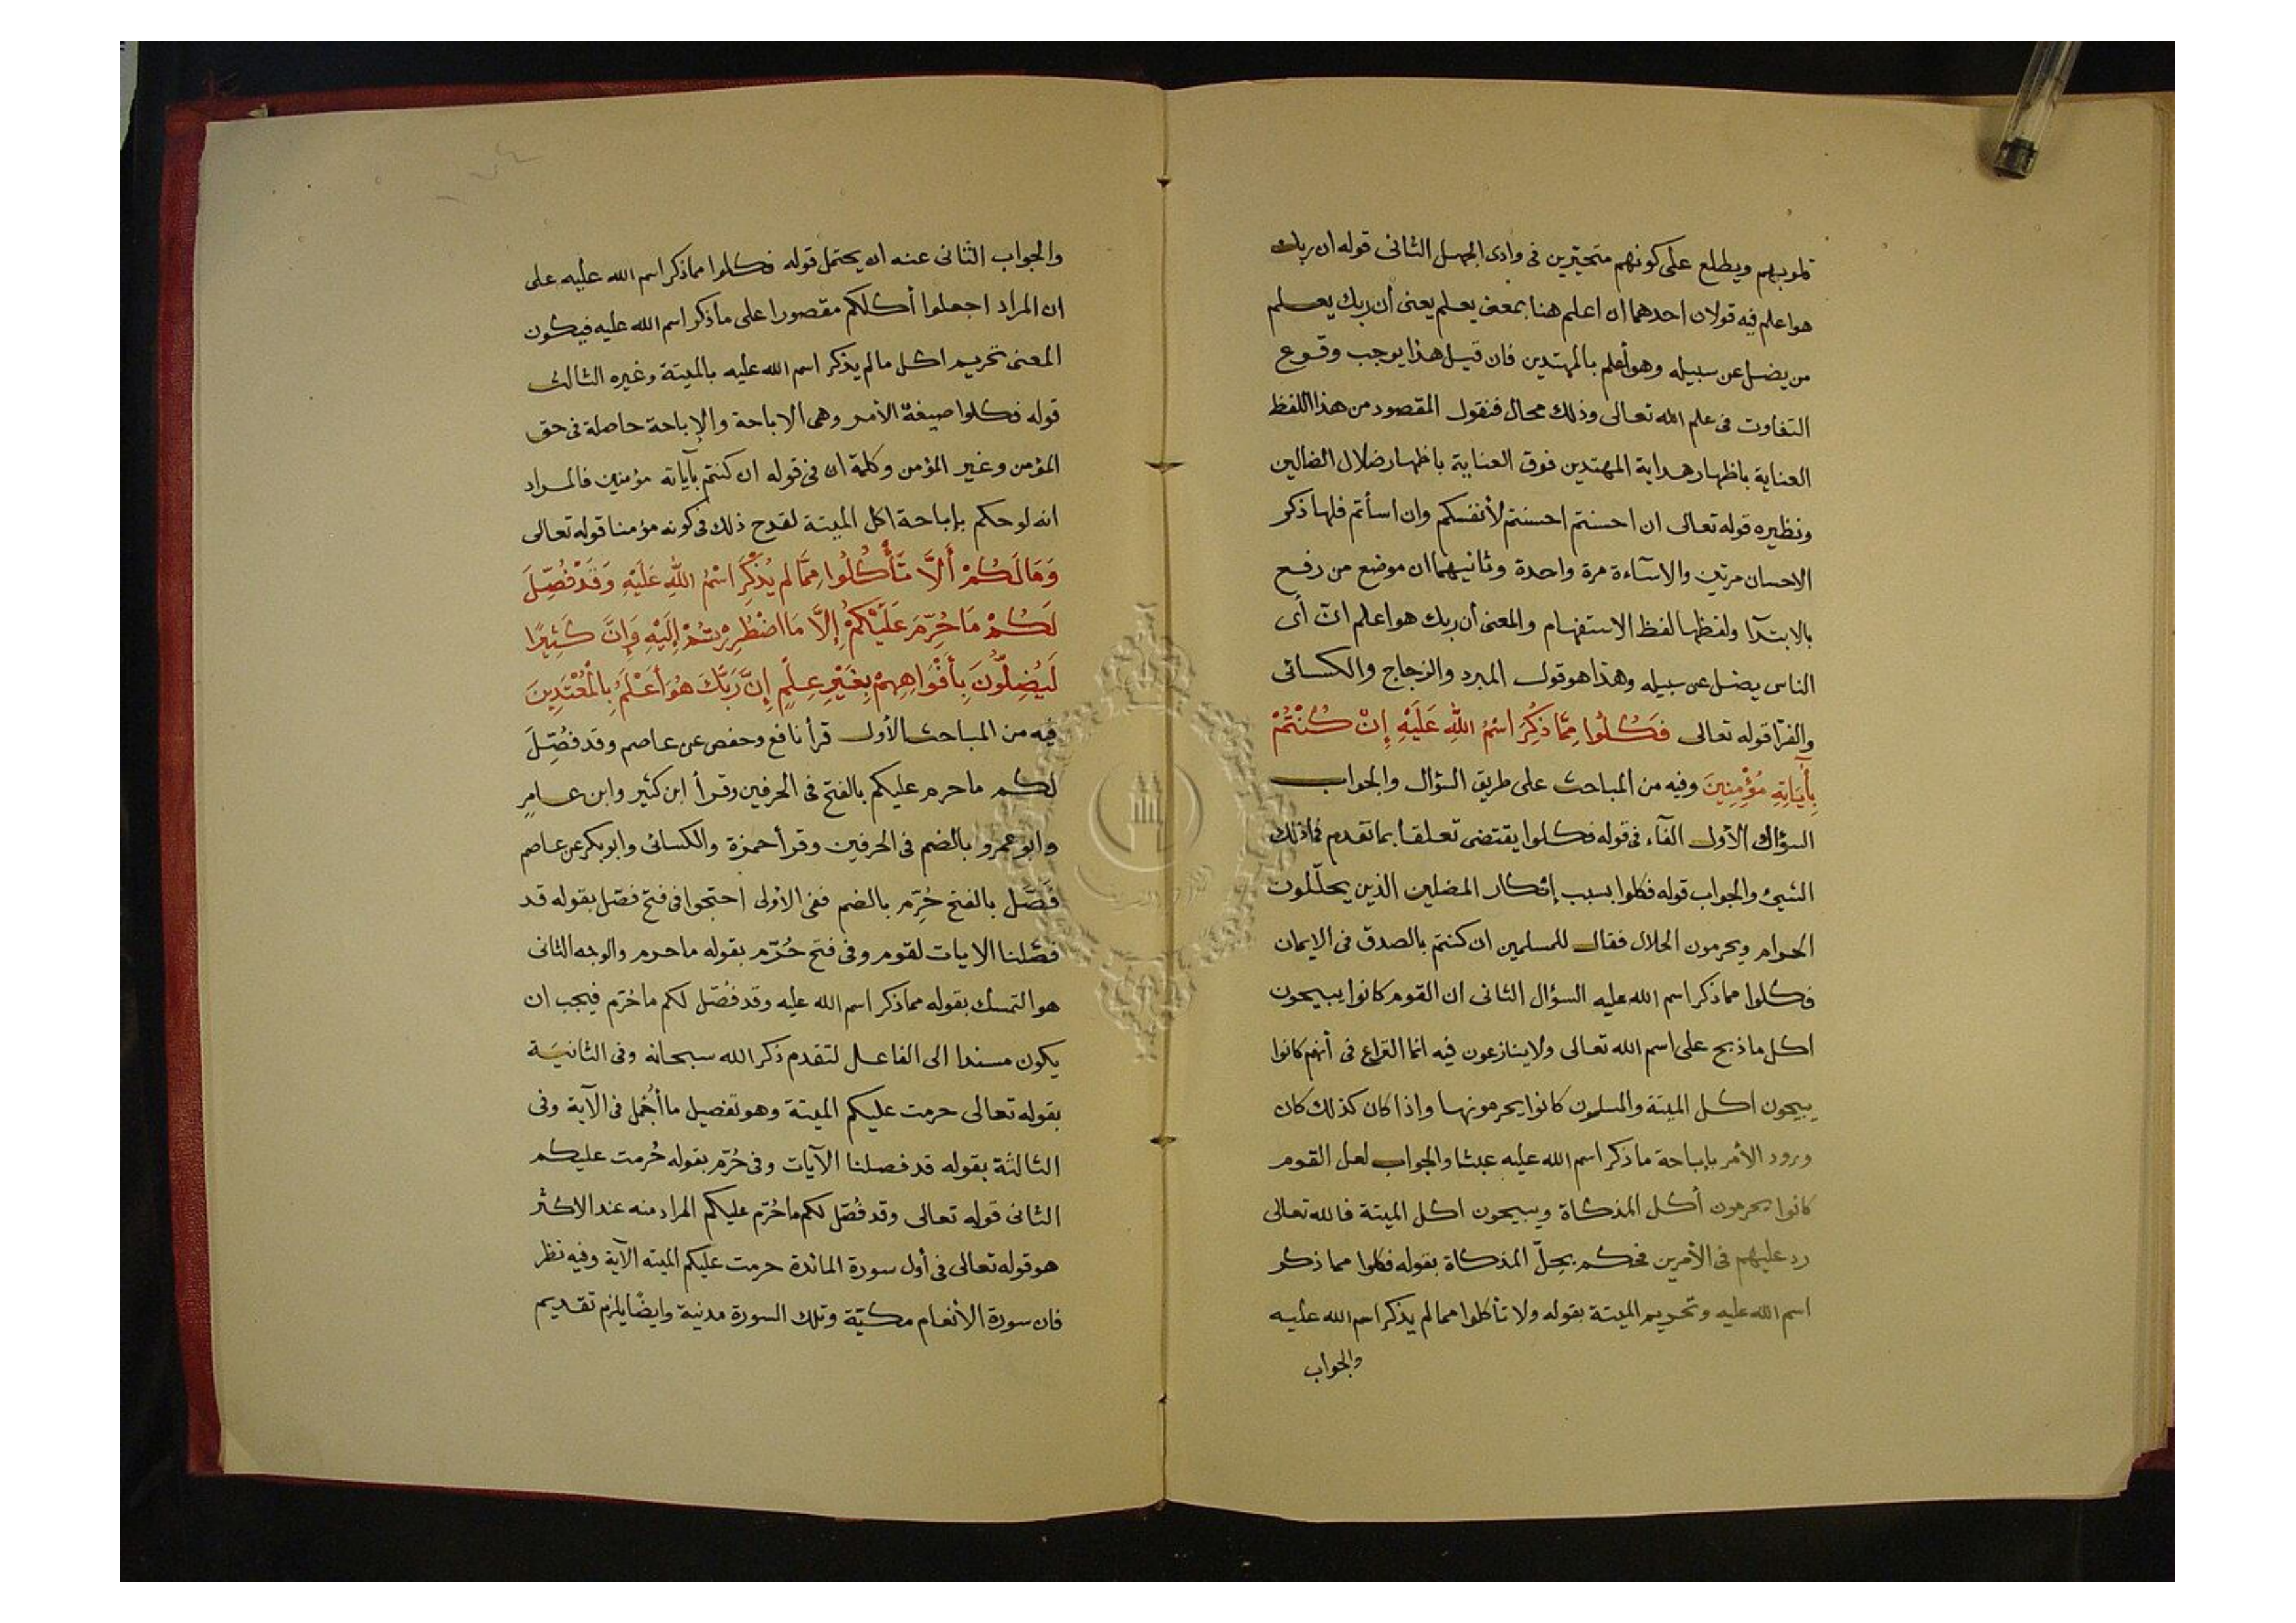 قلوبهم ويطلع على كونهم متحيّرين في وادى الجهل الثانى قوله ان ربك
هو اعلم فيه قولان احدهما ان اعلم هنا بمعنى يعلم يعنى أن ربك يعلم
من يضل عن سبيله وهو أعلم بالمهتدين فان قيل هذا يوجب وقوع
التفاوت فى علم الله تعالى وذلك محال فنقول المقصود من هذا اللفظ
العناية باظهار هداية المهتدين فوق العناية باظهار ضلال الضالين
ونظيره قوله تعالى ان احسنتم احسنتم لأنفسكم وان اسأتم فلها ذكر
الاحسان مرتين والاسآءة مرة واحدة وثانيهما ان موضع من رفع
بالابتدآء ولفظها لفظ الاستفهام والمعنى أن ربك هو اعلم أىّ
الناس يضل عن سبيله وهذا هو قول المبرد والزجاج والكسائى
والفرّا قوله تعالى فَكُلُوا مِمَّا ذُكِرَ اسْمُ اللهِ عَلَيْهِ إِنْ كُنْتُمْ
بِآيَاتِهِ مُؤْمِنِينَ وفيه من المباحث على طريق السؤال والجواب
السؤال الأول الفآء فى قوله فكلوا يقتضى تعلقا بما تقدم فما ذلك
الشيئ والجواب قوله فكلوا بسبب إنكار المضلين الذين يحلّلون
الحرام ويحرمون الحلال فقال للمسلمين ان كنتم بالصدق فى الايمان
فكلوا مما ذكر اسم الله عليه السؤال الثانى ان القوم كانوا يبيحون
اكل ما ذبح على اسم الله تعالى ولا ينازعون فيه انما النزاع فى أنهم كانوا
يبيحون اكل الميتة والمسلمون كانوا يحرمونها واذا كان كذلك كان
ورود الأمر بإباحة ما ذكر اسم الله عليه عبثا والجواب لعل القوم
كانوا يحرمون أكل المذكاة ويبيحون اكل الميتة فالله تعالى
رد عليهم فى الأمرين فحكم بحِلّ المذكاة بقوله فكلوا مما ذكر
اسم الله عليه وتحريم الميتة بقوله ولا تأكلوا مما لم يذكر اسم الله عليه
والجواب
والجواب الثانى عنه ان يحتمل قوله فكلوا مما ذكر اسم الله عليه على
ان المراد اجعلوا أكلكم مقصورا على ما ذكر اسم الله عليه فيكون
المعنى تحريم اكل ما لم يذكر اسم الله عليه بالميتة وغيره الثالث
قوله فكلوا صيغة الأمر وهى الاباحة والإباحة حاصلة فى حق
المؤمن وغير المؤمن وكلمة ان فى قوله ان كنتم بآياته مؤمنين فالمراد
انه لو حكم بإباحة اكل الميتة لقدح ذلك فى كونه مؤمنا قوله تعالى
وَمَالَكُمْ أَلَّا تَأْكُلُوا مِمَّا لم يُذْكَرِ اسْمُ اللهِ عَلَيْهِ وَقَدْ فُصِّلَ
لَكُمْ مَا حُرِّمَ عَلَيْكُمْ إِلَّا مَا اضْطُرِرْتُمْ إِلَيْهِ وَإِنَّ كَثِيرًا
لَيُضِلُّونَ بِأَفْوَاهِهِمْ بِغَيْرِ عِلْمٍ إِنَّ رَبَّكَ هُوَ أَعْلَمُ بِالْمُعْتَدِينَ
فيه من المباحث الأول قرأ نافع وحفص عن عاصم وقد فُصِّلَ
لكم ما حرم عليكم بالفتح فى الحرفين وقرأ ابن كثير وابن عامرٍ
وابو عمرو بالضم فى الحرفين وقرأ حمزة والكسائى وابوبكر عن عاصم
فَصَّل بالفتح حُرِّم بالضم ففى الأولى احتجوا فى فتح فصّل بقوله قد
فصّلنا الايات لقوم وفى فتح حُرّم بقوله ما حرم والوجه الثانى
هو التمسك بقوله مما ذكر اسم الله عليه وقد فُصّل لكم ما حُرّم فيجب ان
يكون مسندا الى الفاعل لتقدم ذكر الله سبحانه وفى الثانيَة
بقوله تعالى حرمت عليكم الميتة وهو تفصيل ما أُجْمل فى الآية وفى
الثالثة بقوله قد فصلنا الآيات وفى حُرّم بقوله حُرمت عليكم
الثانى قوله تعالى وقد فُصّل لكم ما حُرّم عليكم المراد منه عند الاكثر
هو قوله تعالى فى أول سورة المائدة حرمت عليكم الميته الآية وفيه نظر
فان سورة الأنعام مكيّة وتلك السورة مدنية وايضًا يلزم تقديم